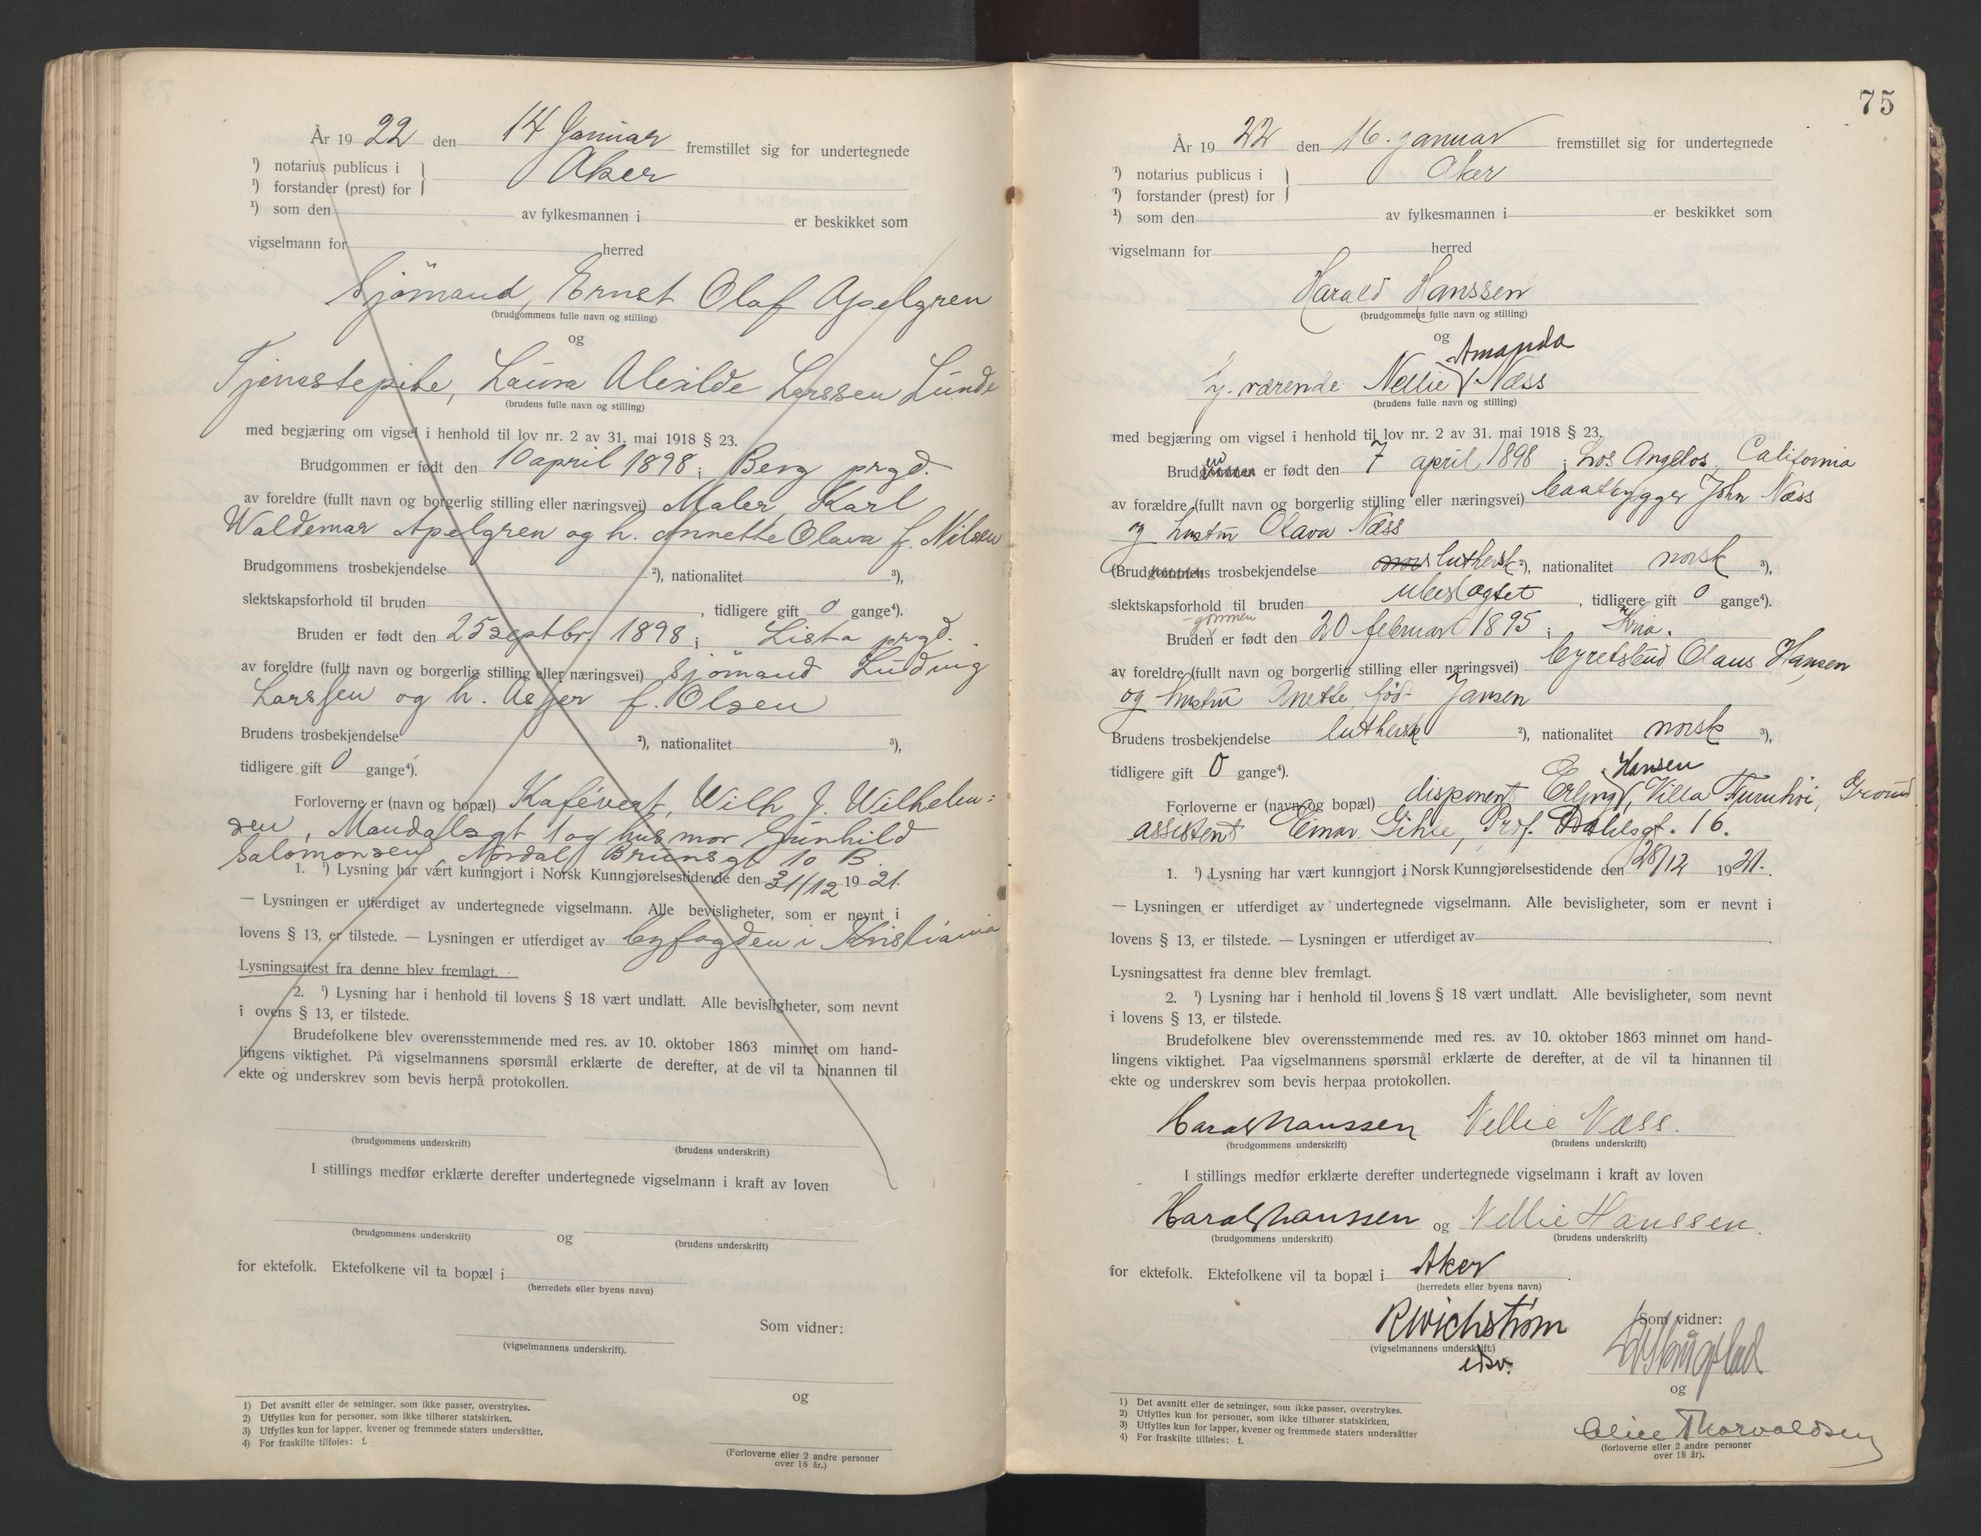 År 1922 den 14 Januar fremstillet sig for undertegnede
¹) notarius publicus i } Aker
¹) forstander (prest) for
¹) som den av fylkesmannen i er beskikket som
vigselmann for herred
Sjömand, Ernst Olaf Apelgren
(brudgommens fulle navn og stilling)
og
Tjenestepike, Laura Alvilde Larssen Lunde
(brudens fulle navn og stilling)
med begjæring om vigsel i henhold til lov nr. 2 av 31. mai 1918 § 23.
Brudgommen er født den 10 april 1898 i Berg prgd.
av foreldre (fullt navn og borgerlig stilling eller næringsvei) Maler, Karl
Waldemar Apelgren og h. Annette Olava f. Nilsen
Brudgommens trosbekjendelse ²), nationalitet ³),
slektskapsforhold til bruden , tidligere gift 0 gange⁴).
Bruden er født den 25 septbr. 1898 i Lista prgd.
av foreldre (fullt navn og borgerlig stilling eller næringsvei) Sjömand Ludvig
Larssen og h. Asjer f. Olsen
Brudens trosbekjendelse ²), nationalitet ³),
tidligere gift 0 gange⁴).
Forloverne er (navn og bopæl) Kafévert, Wilh. J. Wilhelm=
sen, Mandalsgt 1 og husmor Gunhild
Salomonsen, Nordal Brunsgt 10 B.
1. ¹) Lysning har vært kunngjort i Norsk Kunngjørelsestidende den 31/12 1921.
— Lysningen er utferdiget av undertegnede vigselmann. Alle bevisligheter, som er nevnt i
lovens § 13, er tilstede. — Lysningen er utferdiget av byfogden i Kristiania
Lysningsattest fra denne blev fremlagt.
2. ¹) Lysning har i henhold til lovens § 18 vært undlatt. Alle bevisligheter, som nevnt
i ovens § 13, er tilstede.
Brudefolkene blev overensstemmende med res. av 10. oktober 1863 minnet om hand-
lingens viktighet. På vigselmannens spørsmål erklærte de derefter, at de vil ta hinannen til
ekte og underskrev som bevis herpå protokollen.
(brudgommens underskrift) (brudens underskrift)
I stillings medfør erklærte derefter undertegnede vigselmann i kraft av loven
og
(brudgommens underskrift) (brudens underskrift)
for ektefolk. Ektefolkene vil ta bopæl i
(herredets eller byens navn)
Som vidner:
(vigselmannens underskrift).
og
1) Det avsnitt eller de setninger, som ikke passer, overstrykes.
2) Utfylles kun for personer, som ikke tilhører statskirken.
3) Utfylles kun for lapper, kvener og fremmede staters undersåtter.
4) For fraskilte tilføies: f.
(Forloverne eller 2 andre personer
over 18 år.)
75
År 1922 den 16. januar fremstillet sig for undertegnede
¹) notarius publicus i } Aker
¹) forstander (prest) for
¹) som den av fylkesmannen i er beskikket som
vigselmann for herred
Harald Hanssen
(brudgommens fulle navn og stilling)
og
Amanda
hj. værende Nellie Næss
(brudens fulle navn og stilling)
med begjæring om vigsel i henhold til lov nr. 2 av 31. mai 1918 § 23.
Brudgommen er født den 7 april 1898 i Los Angelos, California
av foreldre (fullt navn og borgerlig stilling eller næringsvei) baatbygger John Næss
og hustru Olava Næss
Brudgommens trosbekjendelse luthersk ²), nationalitet norsk ³),
slektskapsforhold til bruden ubeslægtet , tidligere gift 0 gange⁴).
gommen
Bruden er født den 20 februar 1895 i Kria.
av foreldre (fullt navn og borgerlig stilling eller næringsvei) byretsbud Claus Hansen
og hustru Anette, fød Jansen
Brudens trosbekjendelse luthersk ²), nationalitet norsk ³),
tidligere gift 0 gange⁴).
Hansen
Forloverne er (navn og bopæl) disponent Erling, Villa Furuhöi, Grorud
assistent Einar Gihle, Prof. Dahlsgt. 16.
1. ¹) Lysning har vært kunngjort i Norsk Kunngjørelsestidende den 28/12 1921.
— Lysningen er utferdiget av undertegnede vigselmann. Alle bevisligheter, som er nevnt i
lovens § 13, er tilstede. — Lysningen er utferdiget av
Lysningsattest fra denne blev fremlagt.
2. ¹) Lysning har i henhold til lovens § 18 vært undlatt. Alle bevisligheter, som nevnt
i lovens § 13, er tilstede.
Brudefolkene blev overensstemmende med res. av 10. oktober 1863 minnet om hand-
lingens viktighet. Paa vigselmannens spørsmål erklærte de derefter, at de vil ta hinannen til
ekte og underskrev som bevis herpaa protokollen.
Harald Hanssen Nellie Næss.
(brudgommens underskrift) (brudens underskrift)
I stillings medfør erklærte derefter undertegnede vigselmann i kraft av loven
Harald Hanssen og Nellie Hanssen.
(brudgommens underskrift) (brudens underskrift)
for ektefolk. Ektefolkene vil ta bopæl i Aker
(herredets eller byens navn)
RWichstrøm Som vidner:
(vigselmannens underskrift.)
og
1) Det avsnitt eller de setninger, som ikke passer, overstrykes.
2) Utfylles kun for personer, som ikke tilhører statskirken.
3) Utfylles kun for lapper, kvener og fremmede staters undersåtter
4) For fraskilte tilføies: f.
Alice Thorvaldsen
(forloverne eller 2 andre personer
over 18 år).